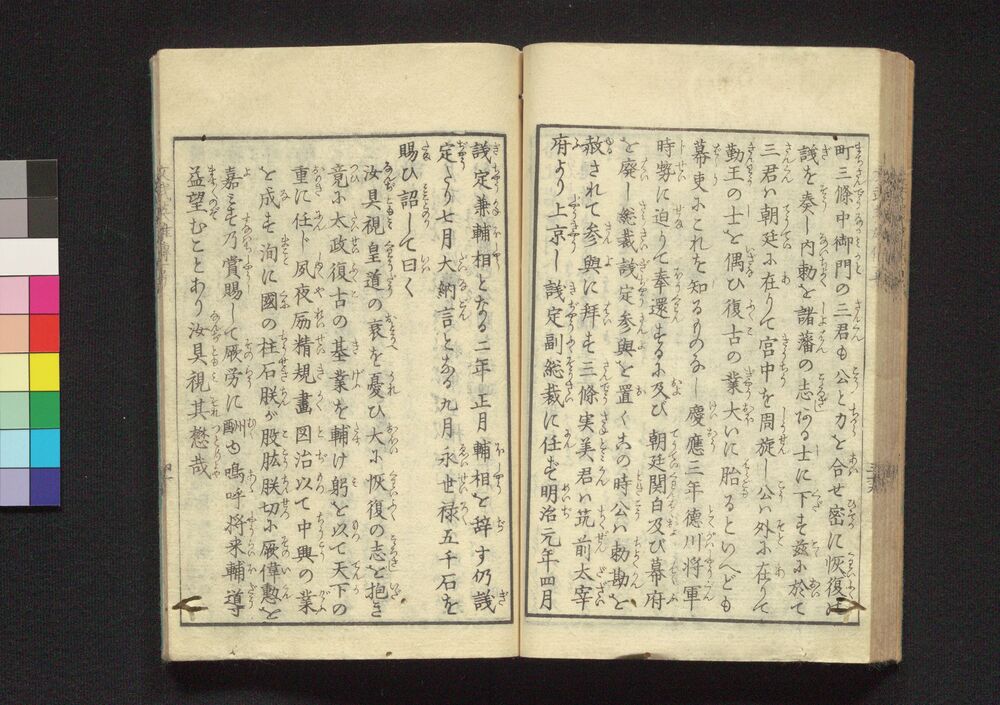 町三條中御門の三君も公と力を合せ密に恢復の
議を奏し内勅を諸藩の志ある士に下す茲に於て
三君ハ朝廷に在りて宮中を周旋し公ハ外に在りて
勤王の士を偶ひ復古の業大いに胎るといへども
幕吏にこれを知るものなし慶應三年徳川将軍
時勢に迫りて奉還するに及び朝廷関白及び幕府
を廃し総裁議定参與を置く此の時公ハ勅勘を
赦されて参與に拜す三條実美君ハ筑前太宰
府より上京し議定副総裁に任ず明治元年四月
議定兼輔相となる二年正月輔相を辞す仍議
定たり七月大納言となる九月永世禄五千石を
賜ひ詔して曰く
汝具視皇道の衰を憂ひ大に恢復の志を抱き
竟に太政復古の基業を輔け躬を以て天下の
重に任ト夙夜励精規畫図治以て中興の業
を成す洵に國の柱石朕が股肱朕切に厥偉勲を
嘉ミす乃賞賜して厥労に酬ゆ嗚呼将来輔導
益望むことあり汝具視其懋哉